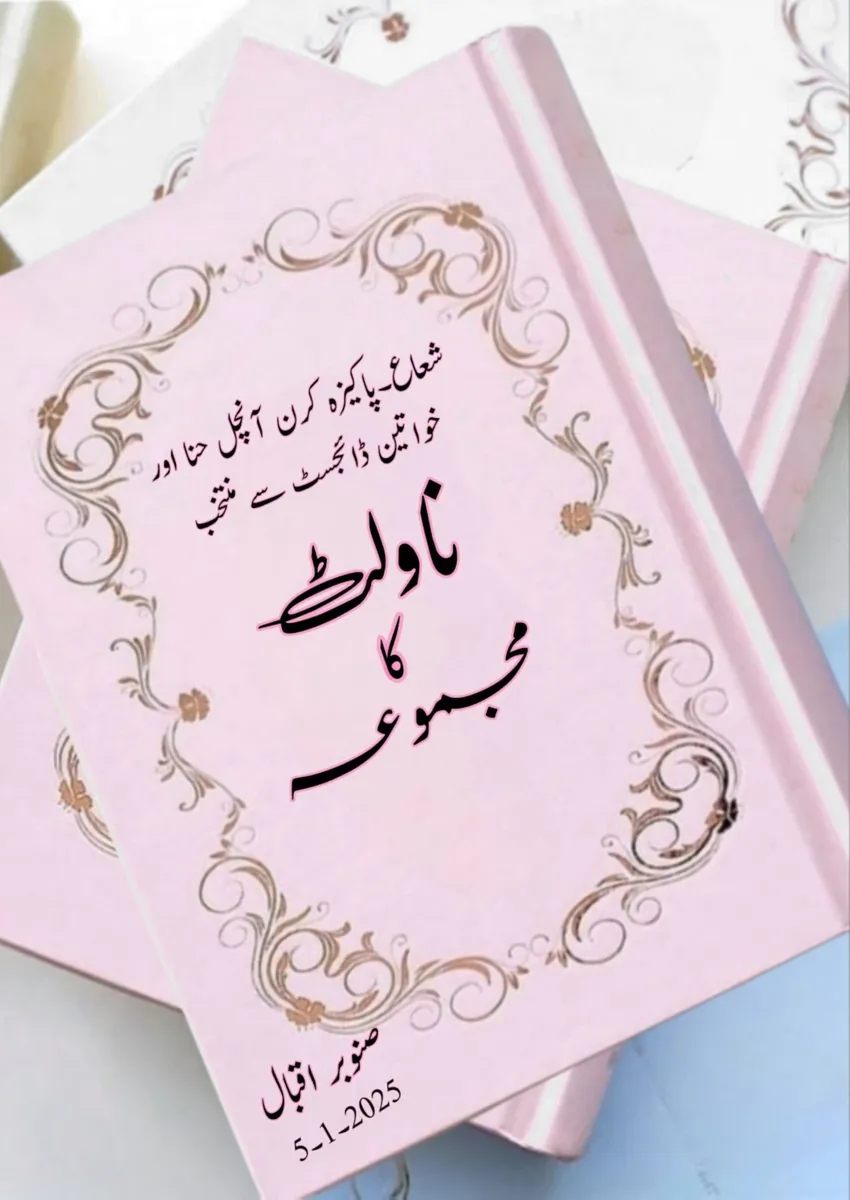 شعاع۔پاکیزہ کرن آنچل حنا اور
خواتین ڈائجسٹ سے منتخب
ناولٹ
کا
مجموعہ
صنوبر اقبال
5-1-2025